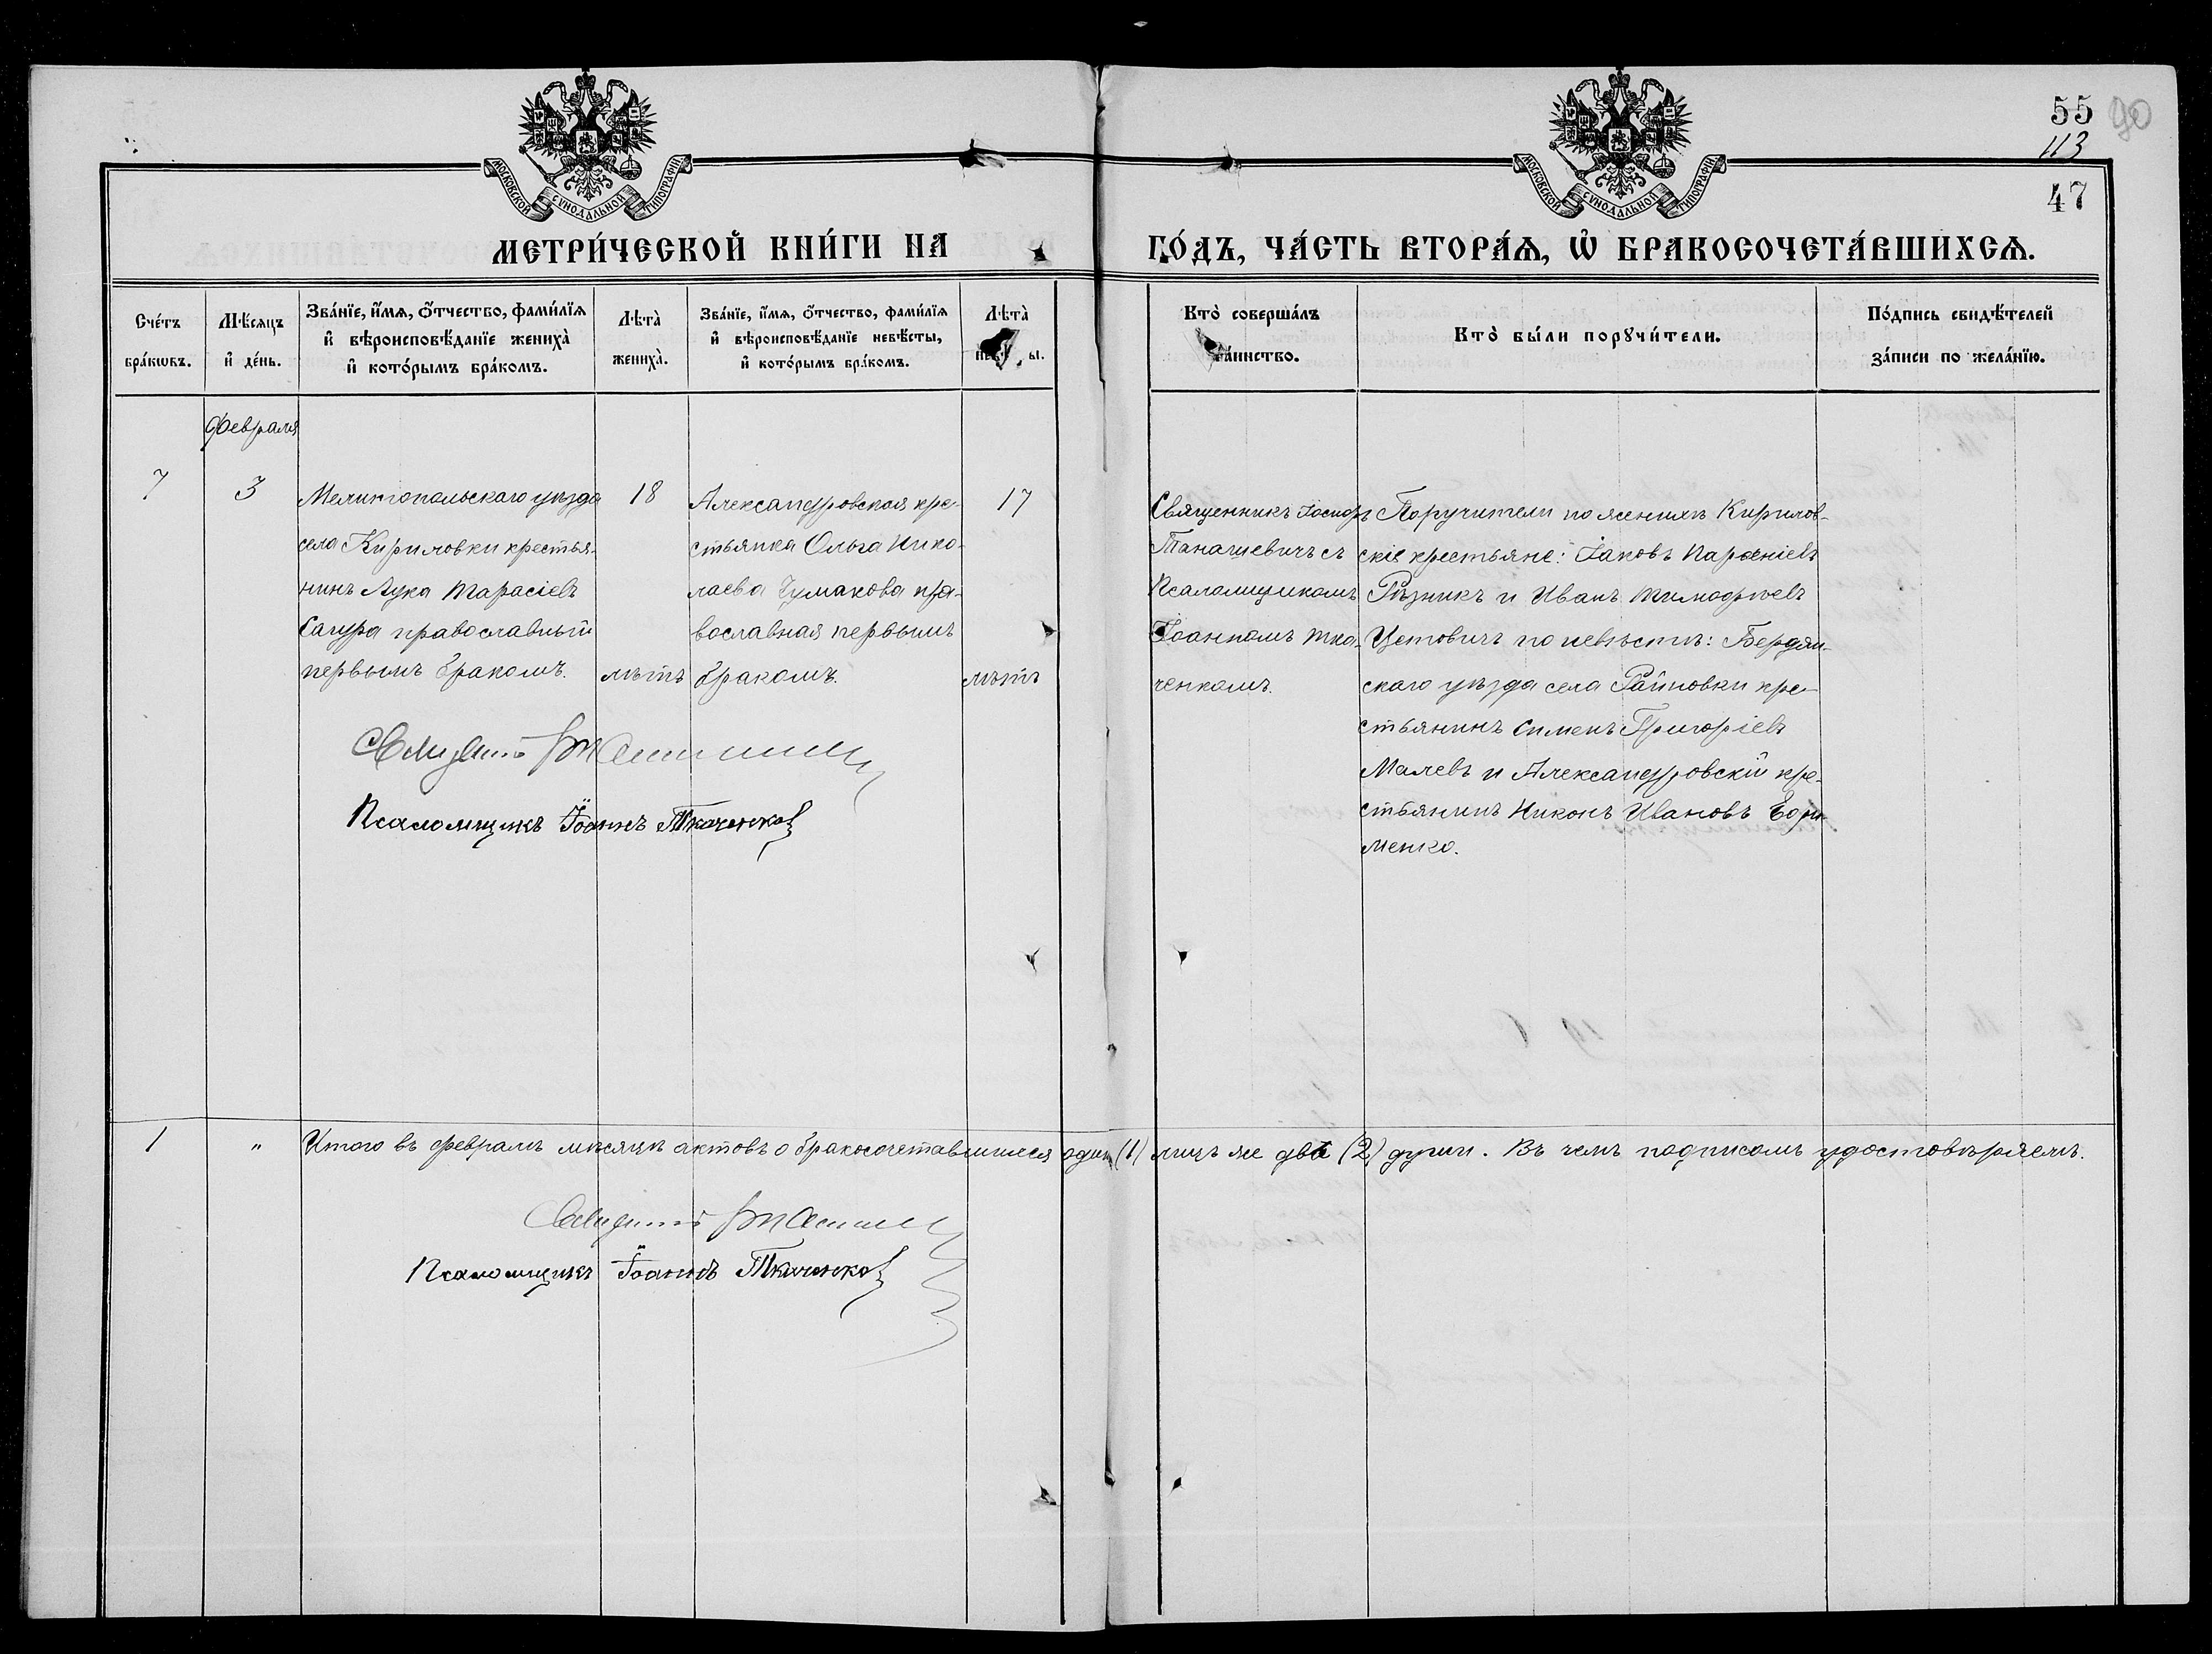 55 90
113
47
МОСКОВСКОЙ СѴНОДАЛЬНОЙ ТИПОГРАФІИ
МОСКОВСКОЙ СѴНОДАЛЬНОЙ ТИПОГРАФІИ
МЕТРИ́ЧЕСКОЙ КНИ́ГИ НА
ГО́ДЪ, ЧА́СТЬ ВТОРА́Ѧ, Ѡ҆ БРАКОСОЧЕТА́ВШИХСѦ.
Сче́тъ
бра́кѡвъ.
Мѣ́сяцъ
и҆ де́нь.
Зва́нїе, и҆́мѧ, ѻ҆́тчество, фами́лїѧ
и҆ вѣроисповѣ́данїе жениха̀
и҆ кото́рымъ бра́комъ.
Лѣта̀
жениха̀.
Зва́нїе, и҆́мѧ, ѻ҆́тчество, фами́лїѧ
и҆ вѣроисповѣ́данїе невѣ́сты,
и҆ кото́рымъ бра́комъ.
Лѣта̀
Кто̀ соверша́лъ
та́инство.
Кто̀ бы́ли порꙋчи́тели.
По́дпись свидѣ́телей
за́писи по жела́нїю.
Февраля
7
3
Мелитопольскаго уѣзда
села Кириловки крестья-
нинъ Лука Тарасіевъ
Сагура православный
первымъ бракомъ.
18
лѣтъ
Александровская кре-
стьянка Ольга Нико-
лаева Чумакова пра-
вославная первымъ
бракомъ.
17
лѣтъ
Священникъ Іосифъ
Танашевичъ съ
Псаломщикомъ
Іоанномъ Тка-
ченкомъ.
Поручители по женихѣ Кирилов-
скіе крестьяне: Іаковъ Парѳеніевъ
Рѣзникъ и Иванъ Тимофѣевъ
Цетовичъ по невѣстѣ: Бердян-
скаго уѣзда села Райновки кре-
стьянинъ Сименъ Григоріевъ
Малевъ и Александровскій кре-
стьянинъ Никонъ Ивановъ Ефи-
менко.
Псаломщикъ Іоаннъ Ткаченко
1
"
Итого въ февралѣ мѣсяцѣ актовъ о бракосочетавшихся одинъ (1) лицъ же двѣ (2) души. Въ чемъ подписомъ удостовѣряемъ.
Псаломщикъ Іоаннъ Ткаченко